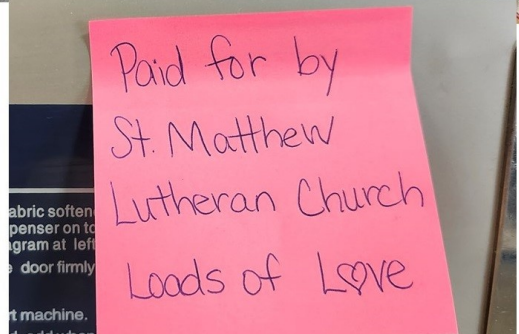 Paid for by
St. Matthew
Lutheran Church
Loads of Love
abric soften
penser on to
agram at left
door firmly
rt machine.